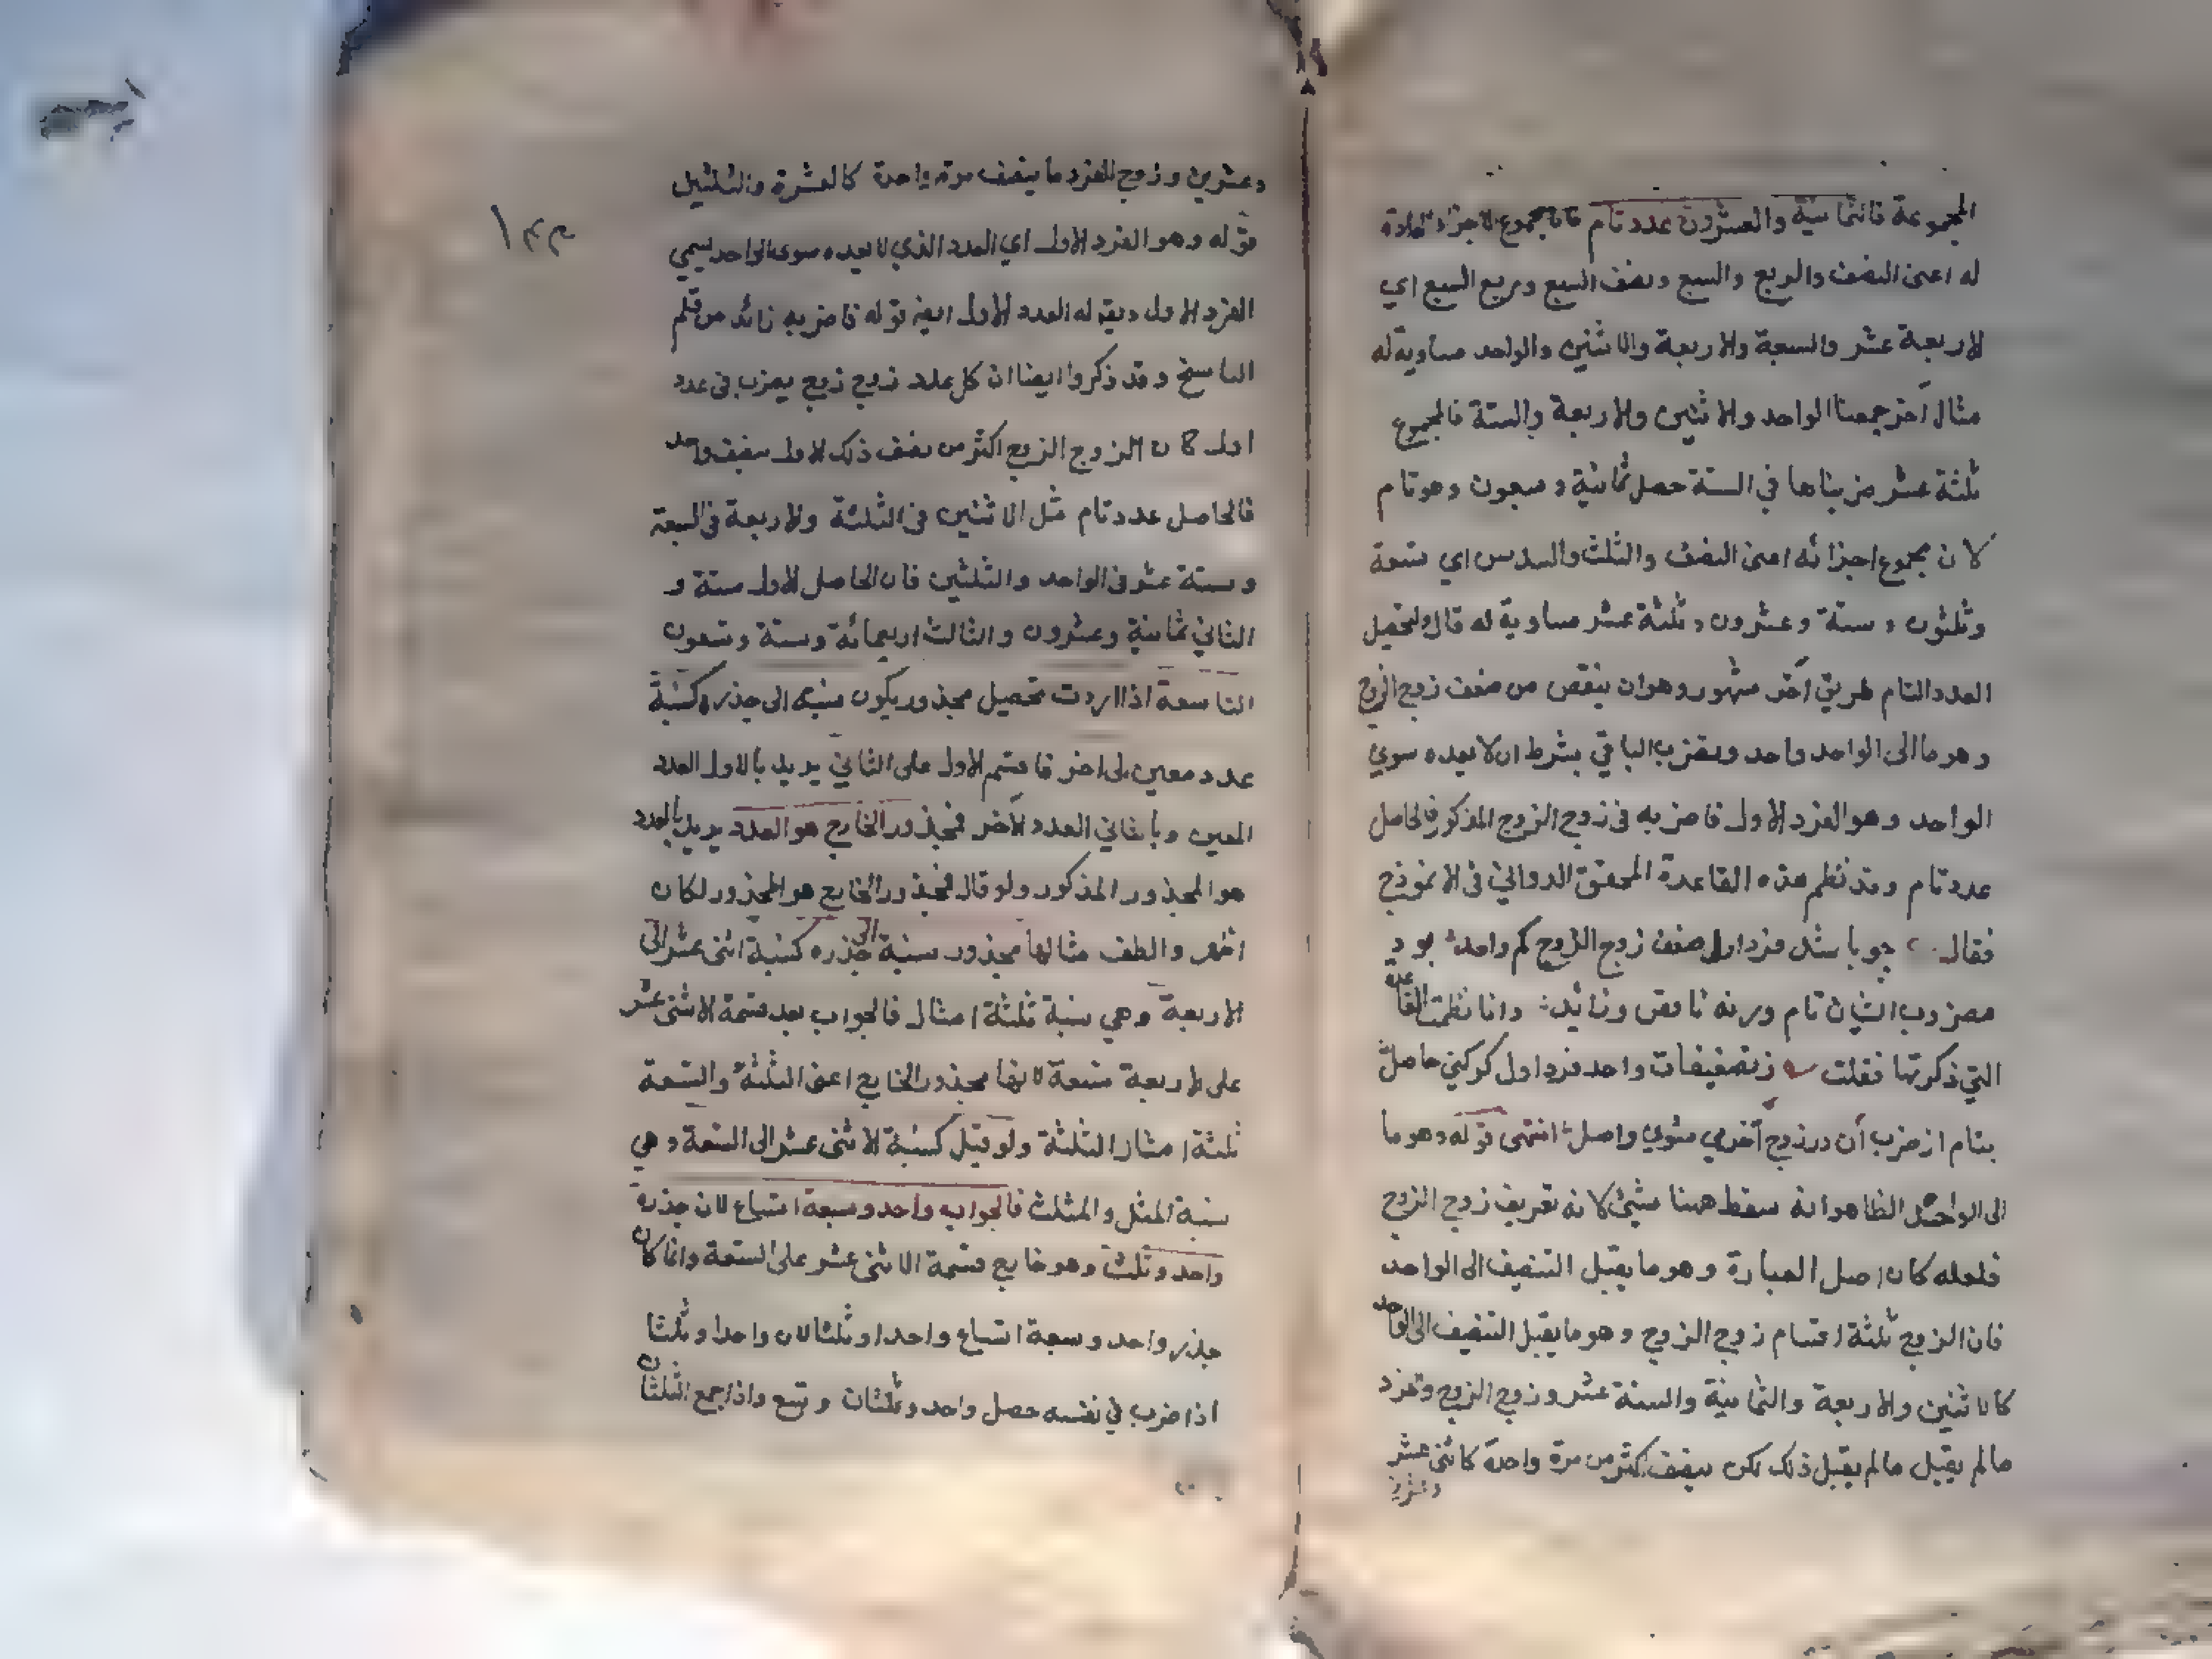 المجموعة فالثمانية والعشرون عدد تام فان مجموع الاجزاء العادة
له اعنى النصف والربع والسبع ونصف السبع وربع السبع اي
الاربعة عشر والسبعة والاربعة والاثنين والواحد مساوية له
مثال آخر جمعنا الواحد والاثنين والاربعة والستة فالمجموع
ثلثة عشر ضربناها في الستة حصل ثمانية وسبعون وهو تام
لان مجموع اجزائه اعنى النصف والثلث والسدس اي تسعة
وثلثون وستة وعشرون وثلثة عشر مساوية له قال ولتحصيل
العدد التام طريق آخر مشهور وهو ان ينقص من ضعف زوج الزوج
وهو ما الى الواحد واحد ويضرب الباقي بشرط ان لا يعده سوي
الواحد وهو الفرد الاول فاضربه فى زوج الزوج المذكور فالحاصل
عدد تام وقد نظم هذه القاعدة المحقق الدوانى فى الانموذج
فقال چو باشد فرد اول ضعف زوج الزوج كم واحد بود
مضروب ايشان تام ورنه ناقص وزائد وانا نظمت القاعدة
التي ذكرتها فقلت ز تضعيفات واحد فرد اول كر كني حاصل
بتام از ضرب آن در زوج آخر مي شوي واصل انتهى قوله وهو ما
الى الواحد الظاهر انه سقط ههنا شيئ لانه تعريف زوج الزوج
فلعله كان اصل العبارة وهو ما يقبل التنصيف الى الواحد
فان الزوج ثلثة اقسام زوج الزوج وهو ما يقبل التنصيف الى الواحد
كالاثنين والاربعة والثمانية والستة عشر وزوج الزوج وفرد
ما لم يقبل ما لم يقبل ذلك لكن ينصف اكثر من مرة واحدة كاثنى عشر
وعشرين
وعشرين وزوج الفرد ما ينصف مرة واحدة كالعشرة والثلثين
قوله وهو الفرد الاول اي العدد الذي لا يعده سوى الواحد يسمي
الفرد الاول ويق له العدد الاول ايض قوله فاضربه زائد من قلم
الناسخ وقد ذكروا ايضا ان كل عدد زوج زوج يضرب فى عدد
اول كان الزوج الزوج اكثر من نصف ذلك الاول بنصف واحد
فالحاصل عدد تام مثل الاثنين فى الثلثة والاربعة فى السبعة
وستة عشر فى الواحد والثلثين فان الحاصل الاول ستة و
الثاني ثمانية وعشرون والثالث اربعمائة وستة وتسعون
التاسعة اذا اردت تحصيل مجذور يكون نسبته الى جذره كنسبة
عدد معين الى اخر فاقسم الاول على الثاني يريد بالاول العدد
المعين وبالثاني العدد الآخر فمجذور الخارج هو العدد يريد بالعدد
هو المجذور المذكور ولو قال فمجذور الخارج هو المجذور لكان
اظهر والطف مثالها مجذور نسبة الى جذره كنسبة اثنى عشر الى
الاربعة وهي نسبة ثلثة امثال فالجواب بعد قسمة الاثنى عشر
على الاربعة تسعة لانها مجذور الخارج اعنى الثلثة والتسعة
ثلثة امثال الثلثة ولو قيل كنسبة الاثنى عشر الى التسعة وهي
نسبة المثل والمثلث فالجواب واحد وسبعة اتساع لان جذره
واحد وثلث وهو خارج قسمة الاثنى عشر على التسعة وانما كان
جذر واحد وسبعة اتساع واحدا وثلثا لان واحدا وثلثا
اذا ضرب في نفسه حصل واحد وثلثان وتسع واذا جمع الثلثان